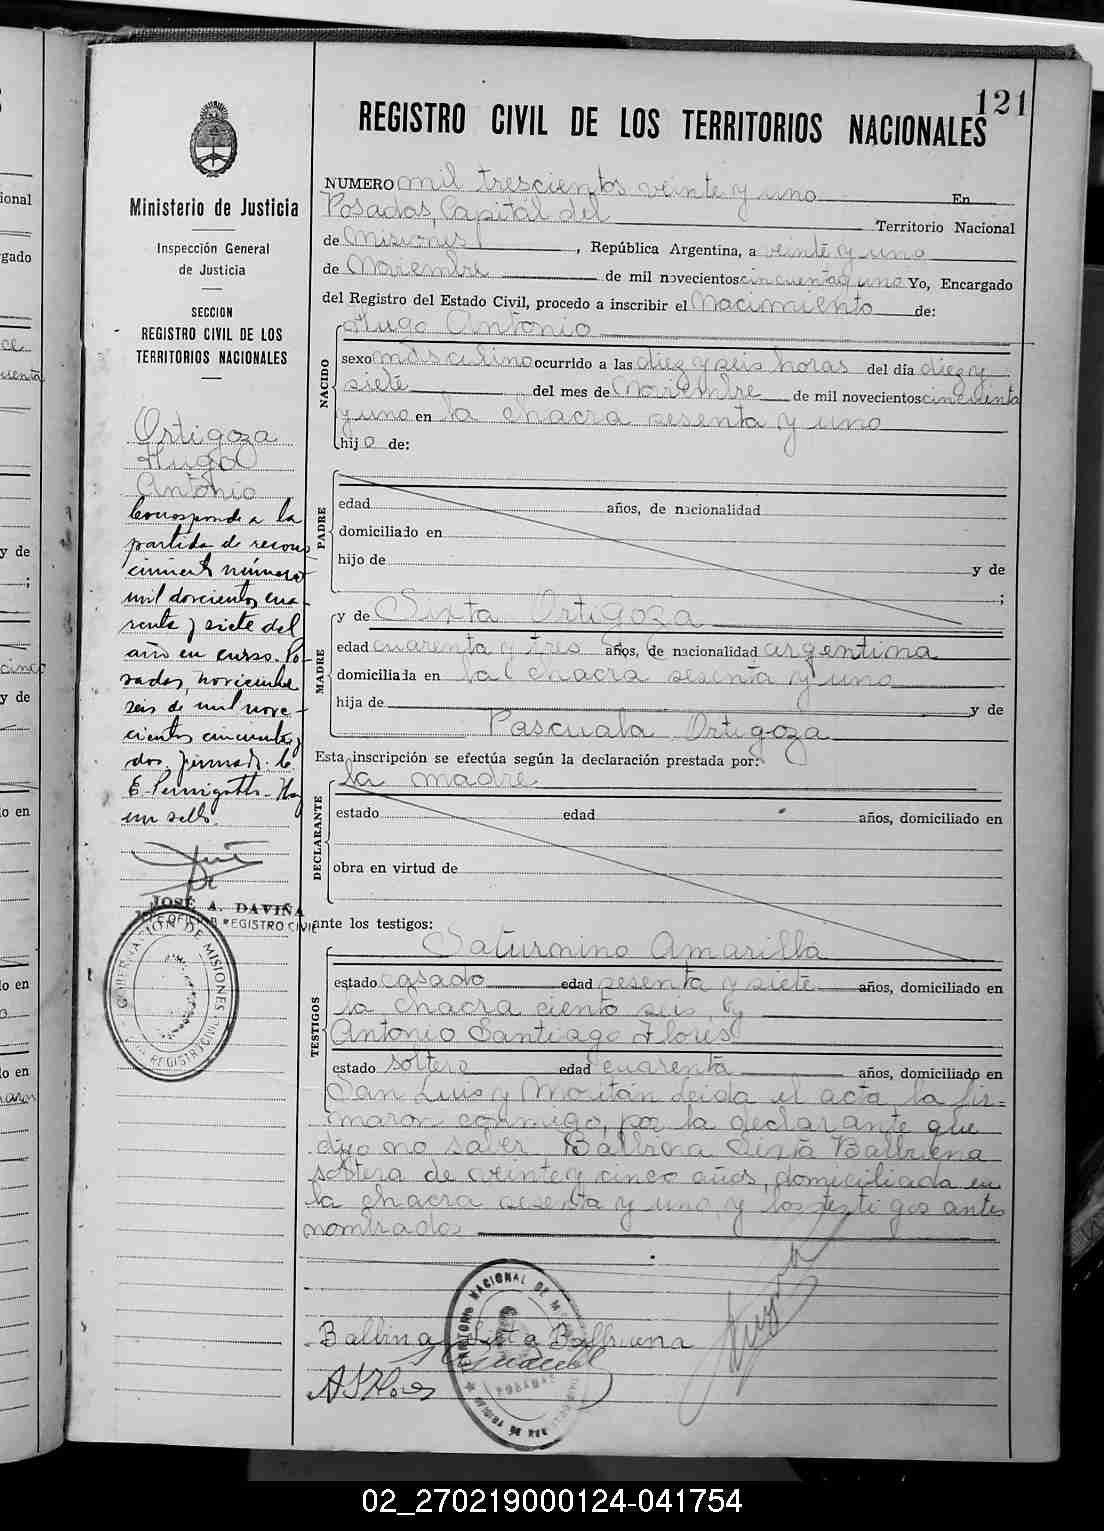 121
REGISTRO CIVIL DE LOS TERRITORIOS NACIONALES
Ministerio de Justicia
Inspección General
de Justicia
SECCION
REGISTRO CIVIL DE LOS
TERRITORIOS NACIONALES
Ortigoza
Hugo
Antonio
Corresponde a la
partida de recono
cimiento número
mil doscientos cua-
renta y siete del
año en curso. Po
sadas, noviembre
seis de mil nove-
cientos cincuenta y
dos. firmado: 
E. Pernigotti - Hay
un sello.
JOSÉ A. DAVIÑA
REGISTRO CIVIL
GOBERNACION DE MISIONES
REGISTRO CIVIL
NUMERO mil trescientos veinte y uno En
Posadas, Capital del Territorio Nacional
de Misiones, República Argentina, a veinte y uno
de Noviembre de mil novecientos cincuenta y uno Yo, Encargado
del Registro del Estado Civil, procedo a inscribir el Nacimiento de:
Hugo Antonio
NACIDO
sexo masculino ocurrido a las diez y seis horas del día diez y
siete del mes de Noviembre de mil novecientos cincuenta
y uno en la chacra sesenta y uno
hijo de:
PADRE
edad años, de nacionalidad
domiciliado en
hijo de y de
;
y de Sixta Ortigoza
MADRE
edad cuarenta y tres años, de nacionalidad argentina
domiciliada en la chacra sesenta y uno
hija de y de
Pascuala Ortigoza
Esta inscripción se efectúa según la declaración prestada por:
la madre
DECLARANTE
estado edad años, domiciliado en
obra en virtud de
ante los testigos:
Saturnino Amarilla
TESTIGOS
estado casado edad sesenta y siete años, domiciliado en
la chacra ciento seis, y
Antonio Santiago Flores
estado soltero edad cuarenta años, domiciliado en
San Luis y Moritán Leida el acta, la fir=
maron conmigo, por la declarante que
dijo no saber Balbina Sixta Balbuena
soltera de veinte y cinco años, domiciliada en
la chacra sesenta y uno, y los testigos antes
nombrados
TERRITORIO NACIONAL DE
POSADAS
Balbina Sixta Balbuena
A S Flores
02_270219000124-041754